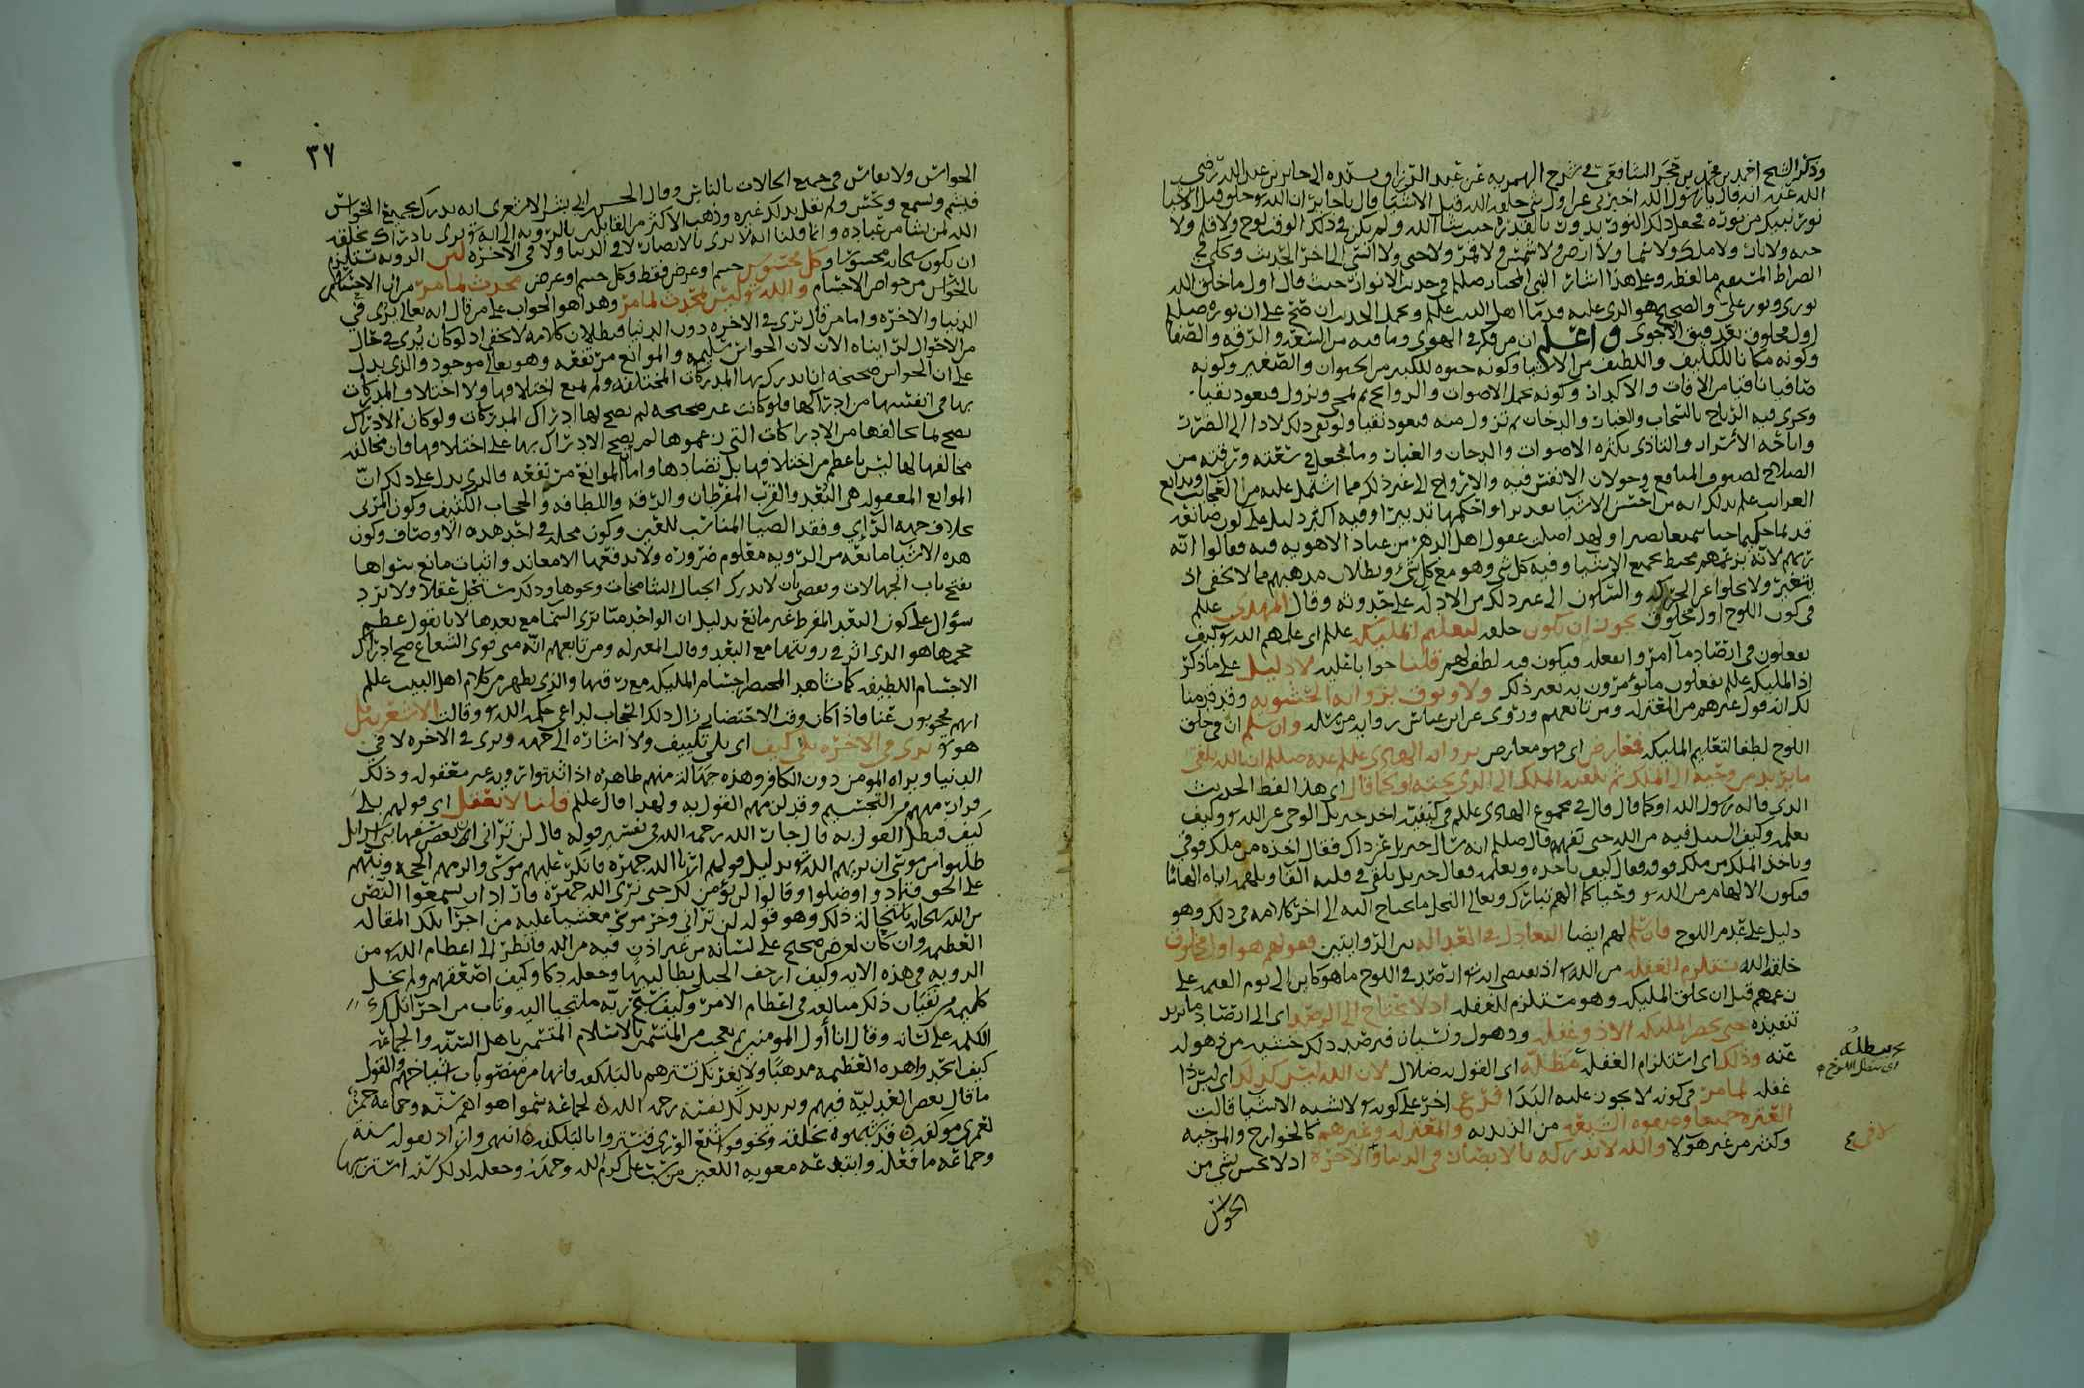 وذكر الشيخ احمد بن محمد بن حجر الشافعي في شرح الهمزيه عن عبد الرزاق بسنده الى جابر بن عبد الله رضي
الله عنه انه قال يا رسول الله اخبرني عن اول شي خلقه الله قبل الاشيا قال يا جابر ان الله خلق قبل الاشيا
نور نبيك من نوره فجعل ذلك النور يدور بالقدره حيث شا الله ولم يكن في ذلك الوقت لوح ولا قلم ولا
جنه ولا نار ولا ملك ولا سما ولا ارض ولا شمس ولا قمر ولا جني ولا انسي الى اخر الحديث
الصراط المستقيم وعلى هذا اشار النبي المختار صلم في حديث الانوار حيث قال اول ما خلق الله
نوري ونور علي والصحيح هو الذي عليه قدما اهل البيت عللم ويحمل الحديث ان صح على ان نوره صلم
اول مخلوق بعد فتق الاجوى واعلم ان من فكر في الهوى وما فيه من السعه والرقه والصفا
وكونه مكانا للكثيف واللطيف من الاشيا وكونه حيوه للكبير من الحيوان والصغير وكونه
صافيا نافيا من الافات والاكدار وكونه يحمل الاصوات والروائح ثم يمحي ويزول فيعود نقيا
وتجري فيه الرياح بالسحاب والغبار والدخان ثم تزول منه فيعود نقيا ولو بقي ذلك لادا الى الضرر
واباحه الاسرار والتاذي بكثره الاصوات والدخان والغبار وما جعل في سعته ورقته من
الصلاح لصنوف المنافع وجولان الانفس فيه والارواح الى غير ذلك مما اشتمل عليه من العجايب وبدايع
الغرايب علم بذلك انه من احسن الاشيا تقديرا واحكمها تدبيرا وفيه اكبر دليل على كون صانعه
قديما حكيما حيا سميعا بصيرا ولهذا ضلت عقول اهل الدهر من عباد الاهويه فيه فقالوا انه
ربهم لانه بزعمهم محيط بجميع الاشيا وفيه كل شي وهو مع كل شي وبطلان مذهبهم مما لا يخفى اذ
يتغير ولا يخلو عن الحركه والسكون الى غير ذلك من الادله على حدوثه وقال المهدي عللم
في كون اللوح اول مخلوق يجوز ان يكون خلقه لتعليم المليكه عللم اي علمهم الله كيف
يفعلون في ارصاد ما امروا بفعله فيكون فيه لطف لهم قلنا جوابا عليه لا دليل على ما ذكر
اذ المليكه عللم يفعلون ما يؤمرون به بغير ذلك ولا وثوق بروايه الحشويه وقد قدمنا
لك انه قول غيرهم من المعتزله ومن تابعهم وروي عن ابن عباس روايه مرسله وان سلم ان في خلق
اللوح لطفا لتعليم المليكه فمعارض اي فهو معارض بروايه الهادي عللم عنه صلم ان الله يلقي
ما يريد من وحيه الى الملك ثم يلقيه الملك الى الذي تحته او كما قال اي هذا لفظ الحديث
الذي قاله رسول الله او كما قال قال في مجموع الهادي عللم في كيفيه اخذ جبريل الوحي عن الله وكيف
يعلمه وكيف السبيل فيه من الله حتى تفهمه قال صلم انه سال جبريل عن ذاك فقال اخذه من ملك فوقي
وياخذ الملك من ملك فوقه فقال كيف ياخذه ويعلمه فقال جبريل يلقى في قلبه القا ويلهمه اياه الهاما
فيكون الالهام من الله وحيا كما الهم تبارك وتعالى النحل ما تحتاج اليه الى اخر كلامه في ذلك وهو
دليل على عدم اللوح فان سلم لهم ايضا التعادل في العداله بين الروايتين فقولهم هو اول مخلوق
خلقه الله يستلزم الغفله من الله اذ يقتضي ارصد في اللوح ما هو كاين الى يوم القيمه على
زعمهم قبل ان يخلق المليكه وهو مستلزم للغفله اذ لا يحتاج الى الرصد اي الى ارصاد ما يريد
تنفيذه حتى يحضر المليكه الا ذو غفله وذهول ونسيان فيرصد ذلك خشيه من ذهوله
عنه وذلك اي استلزام الغفله مبطله اي القول به ضلال لان الله ليس كذلك اي ليس ذا
غفله لما مر في كونه لا يجوز عليه البدا فرع اخر على كونه لا تشبهه الاشيا قالت
العتره جميعا وصفوه الشيعه من الزيديه والمعتزله وغيرهم كالخوارج والمرجيه
وكثير من غير هؤلا والله لا تدركه الابصار في الدنيا والاخره اذ لا يحس بشي من
الحواس
٣٧
الحواس ولا يقاس في جميع الحالات بالناس وقال الحسن ابن بشر الاشعري انه يدرك بجميع الحواس
فيشم ويسمع ويحس ولم يقل بذلك غيره وذهب الاكثر من القايلين بالرويه الى انه يرى بادراك يخلقه
الله لمن يشا من عباده وانما قلنا انه لا يرى بالابصار لا في الدنيا ولا في الاخره لان الرويه تستلزم
ان يكون سبحانه محسوسا وكل محسوس جسم او عرض فقط وكل جسم او عرض محدث لما مر من ان الاحساس
بالحواس من خواص الاجسام والله ليس بمحدث لما مر وهذا هو الجواب على من قال انه تعالى يرى في
الدنيا والاخره واما من قال يرى في الاخره دون الدنيا فبطلان كلامه لا يخفى اذ لو كان يرى في حال
من الاحوال لرايناه الان لان الحواس سليمه والموانع مرتفعه وهو تعالى موجود والذي يدل
على ان الحواس صحيحه انا ندرك بها المدركات المختلفه ولم يمنع اختلافها ولا اختلاف المدركات
بها في انفسها من ادراكها ولو كانت غير صحيحه لم يصح لها ادراك المدركات ولو كان الادراك
يصح لما يخالفها من الادراكات التي زعموها لم يصح الادراك بها على اختلافها فان مخالفه
مخالفها لها ليس باعظم من اختلافها بل تضادها واما الموانع مرتفعه والذي يدل على ذلك ان
الموانع المعقوله هي البعد والقرب المفرطان والرقه واللطافه والحجاب الكثيف وكون المرئي
بخلاف جهه الرآي وفقد الضيا المناسب للعين وكون محله في احد هذه الاوصاف وكون
هذه الاشيا مانعه من الرويه معلوم ضروره ولا يدفعها الا معاند واثبات مانع سواها
يفتح باب الجهالات ويقضي بان لا ندرك الجبال الشامخات ونحوها وذلك مستحيل عقلا ولا يرد
سؤال على كون البعد المفرط غير مانع بدليل ان الواحد منا يرى السما مع بعدها لانا نقول عظم
حجمها هو الذي اثر في رويتها مع البعد وقالت المعتزله ومن تابعهم انه متى قوي الشعاع صح ادراك
الاجسام اللطيفه كما شاهد المحتضر اجسام المليكه مع رقتها والذي يظهر من كلام اهل البيت عللم
انهم محجوبون عنا فاذا كان وقت الاحتضار زال ذلك الحجاب لداعي حكمه الله وقالت الاشعريه بل
هو يرى في الاخره بلا كيف اي بلا تكييف ولا اشاره الى جهه ويرى في الاخره لا في
الدنيا ويراه المؤمن دون الكافر وهذه جهاله منهم ظاهره اذ اثبتوا رويه غير معقوله وذلك
فرار منهم من التجسيم وقد لزمهم القول به ولهذا قال عللم قلنا لا يعقل اي قولهم بلا
كيف فبطل القول به قال جار الله رحمه الله في تفسير قوله قال لن تراني ان بعض سفها بني اسرايل
طلبوا من موسى ان يريهم الله بدليل قولهم ارنا الله جهره فانكر عليهم موسى والزمهم الحجه ونبههم
على الحق فتمادوا وضلوا وقالوا لن نؤمن لك حتى نرى الله جهره فاراد ان يسمعوا النص
من الله سبحانه باستحاله ذلك وهو قوله لن تراني وخر موسى مغشيا عليه من اجرا تلك المقاله
العظيمه وان كان لغرض صحيح على لسانه من غير اذن فيه من الله فانظر الى اعظام الله من
الرويه في هذه الايه وكيف ارجف الجبل بطالبيها وجعله دكا وكيف اصعقهم ولم يخل
كليمه من نفيان ذلك مبالغه في اعظام الامر وكيف سبح ربه ملتجيا اليه وتاب من اجرا تلك
الكلمه على لسانه وقال انا أول المؤمنين ثم تعجب من المتسمين بالاسلام المتسمين باهل السنه والجماعه
كيف اتخذوا هذه العظيمه مذهبا ولا يغرنك تسترهم بالبلكفه فانها من منصوبات اشياخهم والقول
ما قال بعض العدليه فيهم ويريد بذلك نفسه رحمه الله لجماعه سموا هواهم سنه وجماعه حمر
لعمري موكفه قد شبهوه بخلقه وتخوفوا شنع الورى فتستروا بالبلكفه انتهى واراد بقوله سنه
وجماعه ما فعله وابتدعه معويه اللعين من سب علي كرم الله وجهه وجعله لذلك سنه استن بها